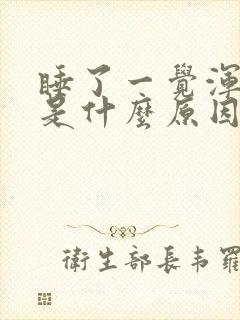 睡了一覺渾
是什麼原因
衛生部長韦羅